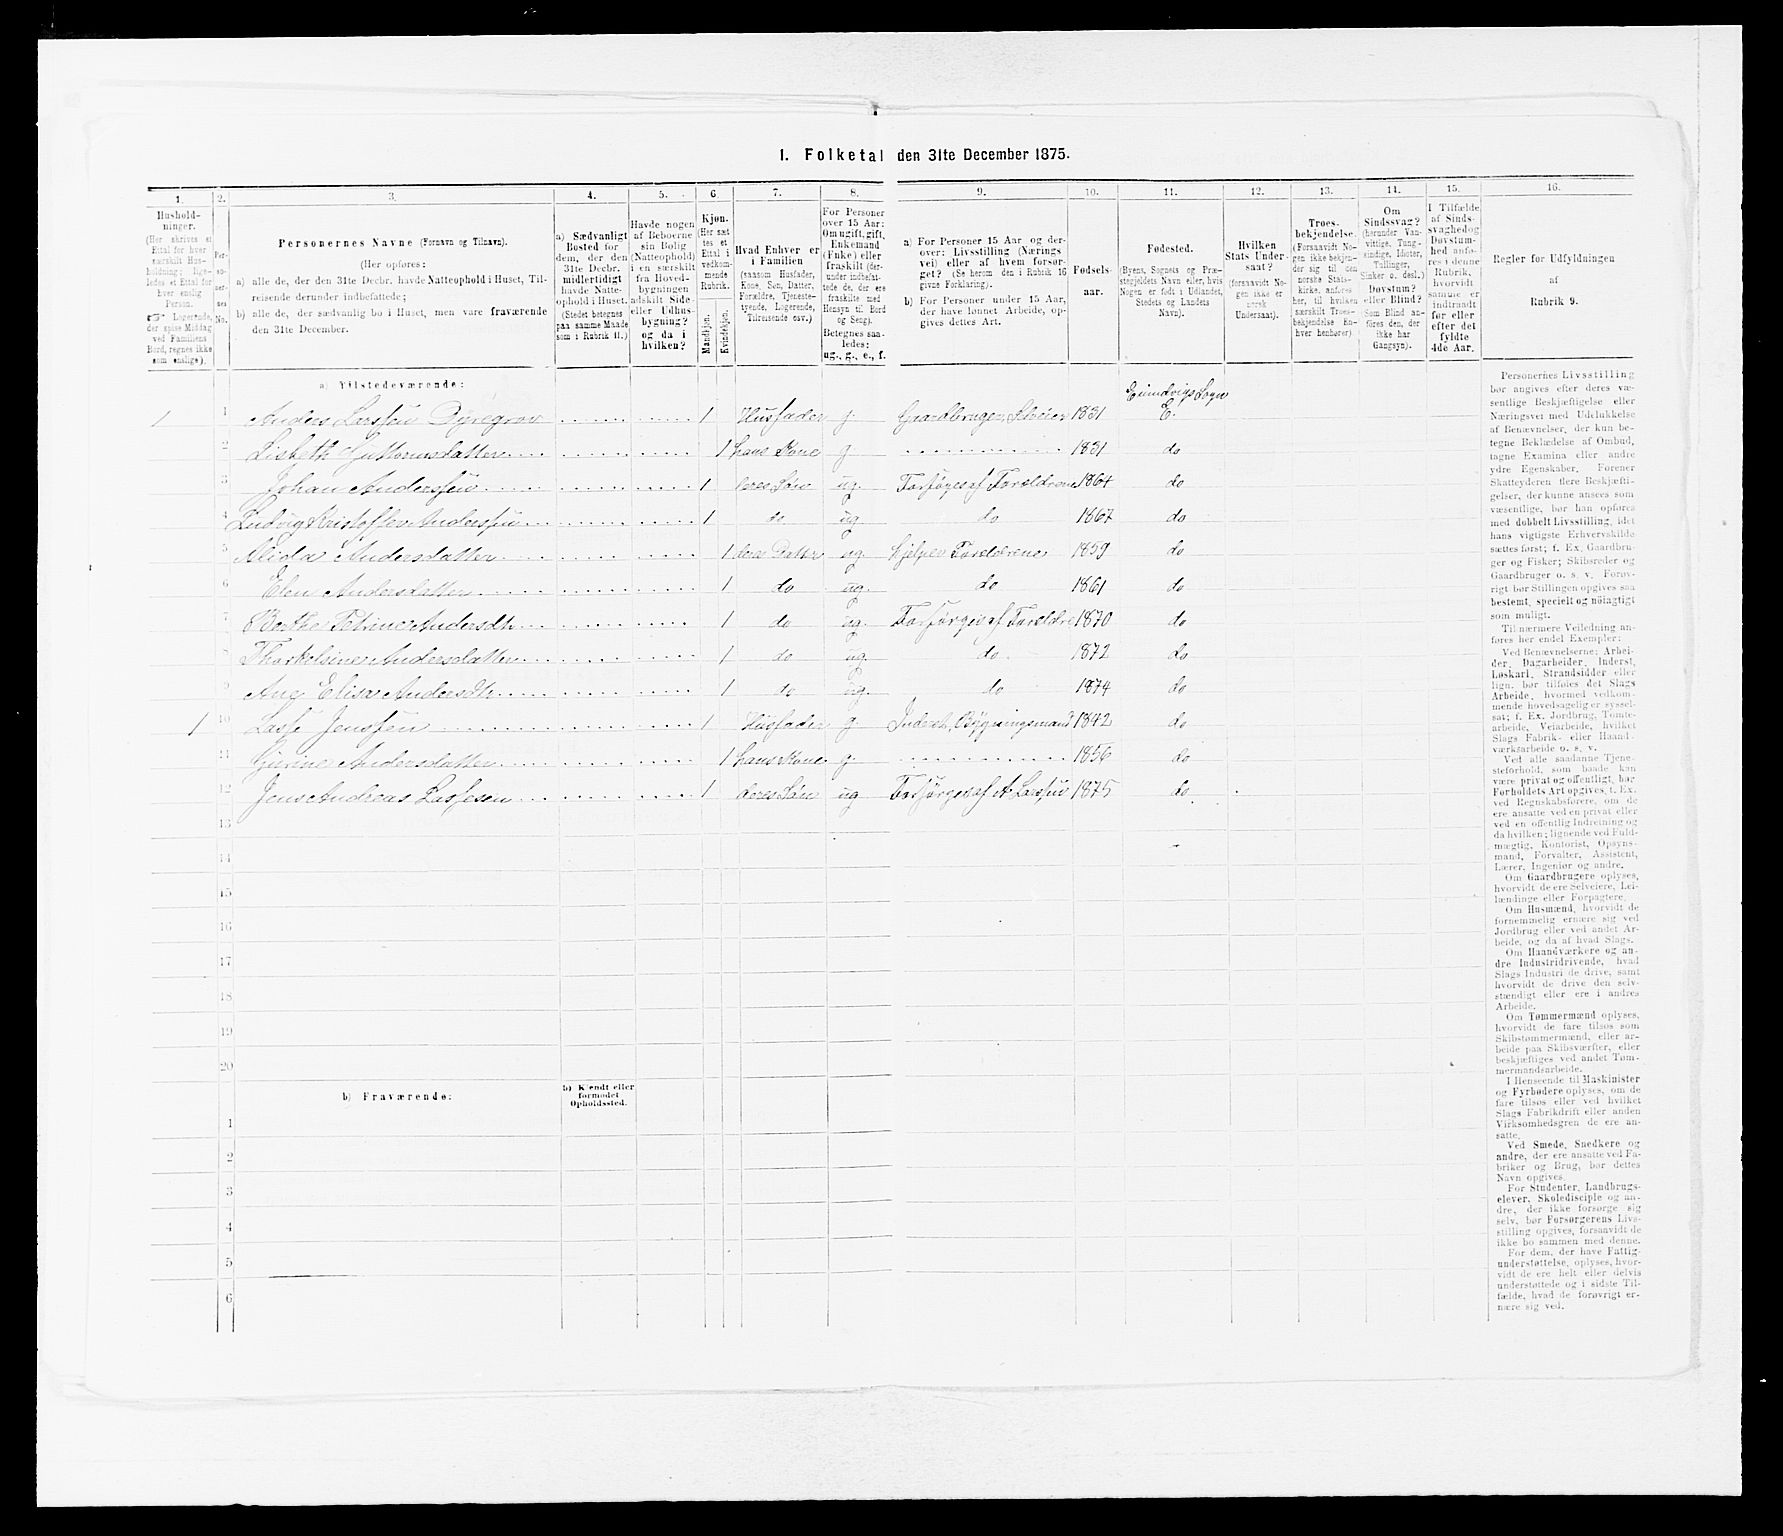 1. Folketal den 31te December 1875.
1. 2. 3. 4. 5. 6. 7. 8. 9. 10. 11. 12. 13. 14. 15. 16.
Hushold-
ninger.
(Her skrives et
Ettal for hver
særskilt Hus-
holdning; lige-
ledes et Ettal for
hver enslig
Person.
☞ Logerende,
der spise Middag
ved Familiens
Bord, regnes ikke
som enslige).
Per-
so-
ner-
nes
No.
Personernes Navne (Fornavn og Tilnavn).
(Her opføres:
a) alle de, der den 31te Decbr. havde Natteophold i Huset, Til-
reisende derunder indbefattede;
b) alle de, der sædvanlig bo i Huset, men vare fraværende
den 31te December.
a) Sædvanligt
Bosted for
dem, der den
31te Decbr.
midlertidigt
havde Natte-
ophold i Huset.
(Stedet betegnes
paa samme Maade
som i Rubrik 11.)
Havde nogen
af Beboerne
sin Bolig
(Natteophold)
i en særskilt
fra Hoved-
bygningen
adskilt Side-
eller Udhus-
bygning?
og da i
hvilken?
Kjøn.
(Her sæt-
tes et
Ettal i
vedkom-
mende
Rubrik.
Mandkjøn.
Kvindekjøn.
Hvad Enhver er
i Familien
(saasom Husfader,
Kone, Søn, Datter,
Forældre, Tjeneste-
tyende, Logerende,
Tilreisende osv.)
For Personer
over 15 Aar:
Om ugift, gift,
Enkemand
(Enke) eller
fraskilt (der-
under indbefat-
tede de, der ere
fraskilte med
Hensyn til Bord
og Seng).
Betegnes saa-
ledes:
ug., g., e., f.
a) For Personer 15 Aar og der-
over: Livsstilling (Nærings-
vei) eller af hvem forsør-
get? (Se herom den i Rubrik 16
givne Forklaring).
b) For Personer under 15 Aar,
der have lønnet Arbeide, op-
gives dettes Art.
Fødsels-
aar.
Fødested.
(Byens, Sognets og Præ-
stegjeldets Navn eller, hvis
Nogen er født i Udlandet,
Stedets og Landets
Navn).
Hvilken
Stats Under-
saat?
(forsaavidt No-
gen ikke er
norsk
Undersaat).
Troes-
bekjendelse.
(Forsaavidt No-
gen ikke bekjen-
der sig til den
norske Stats-
kirke, anføres
her, til hvilken
særskilt Troes-
bekjendelse En-
hver henhører).
Om
Sindssvag?
(herunder Van-
vittige, Tung-
sindige, Idioter,
Tullinger,
Sinker o. desl.)
Døvstum?
eller Blind?
Som Blind an-
føres den, der
ikke har
Gangsyn).
I Tilfælde
af Sinds-
svaghed og
Døvstum-
hed anfø-
res i denne
Rubrik,
hvorvidt
samme er
indtraadt
før eller
efter det
fyldte
4de Aar.
Regler for Udfyldningen
af
Rubrik 9.
a) Tilstedeværende:
Eivindvigs Sogn
1 1 Anders Larssen Dyregrov 1 Husfader g Gaardbruger, Selveier 1831 E.
2 Lisbeth Guttormsdatter 1 hans Kone g 1831 do
3 Johan Anderssen 1 deres Søn ug Forsørges af Forældrene 1864 do
4 Ludvig Kristoffer Anderssen 1 do ug do 1867 do
5 Andersdatter 1 deres Datter ug Hjelper Forældrene 1859 do
6 Elen Andersdatter 1 do ug do 1861 do
7 Berthe Petrine Andersdtr 1 do ug Forsørges af Forældre 1870 do
8 Thorkelsine Andersdatter 1 do ug do 1872 do
9 Ane Elisa Andersdtr 1 do ug do 1874 do
1 10 Lasse Jenssen 1 Husfader g Inderst, Bygningsmand 1842 do
11 Gurine Andersdatter 1 hans Kone g 1856 do
12 Jens Andreas Lassesen 1 deres Søn ug Forsørges af A Larssen 1875 do
13
14
15
16
17
18
19
20
b) Fraværende:
b) Kjendt eller
formodet
Opholdssted.
1
2
3
4
5
6
Personernes Livsstilling
bør angives efter deres væ-
sentlige Beskjæftigelse eller
Næringsvei med Udelukkelse
af Benævnelser, der kun be-
tegne Beklædelse af Ombud,
tagne Examina eller andre
ydre Egenskaber. Forener
Skatteyderen flere Beskjæfti-
gelser, der kunne ansees som
væsentlige, bør han opføres
med dobbelt Livsstilling, idet
hans vigtigste Erhvervskilde
sættes først; f. Ex. Gaardbru-
ger og Fisker; Skibsreder og
Gaardbruger o. s. v. Forøv-
rigt bør Stillingen opgives saa
bestemt, specielt og nøiagtigt
som muligt.
Til nærmere Veiledning an-
føres her endel Exempler:
Ved Benævnelserne: Arbei-
der, Dagarbeider, Inderst,
Løskarl, Strandsidder eller
lign. bør tilføies det Slags
Arbeide, hvormed vedkom-
mende hovedsagelig er syssel-
sat; f. Ex. Jordbrug, Tomte-
arbeide, Veiarbeide, hvilket
Slags Fabrik- eller Haand-
værksarbeide o. s. v.
Ved alle saadanne Tjene-
steforhold, som baade kan
være privat og offentligt, bør
Forholdets Art opgives, t. Ex.
ved Regnskabsførere, om de
ere ansatte ved en privat eller
ved en offentlig Indretning og
da hvilken; lignende ved Fuld-
mægtig, Kontorist, Opsyns-
mand, Forvalter, Assistent,
Lærer, Ingeniør og andre.
Om Gaardbrugere oplyses,
hvorvidt de ere Selveiere, Lei-
lændinge eller Forpagtere.
Om Husmænd, hvorvidt de
fornemmelig ernære sig ved
Jordbrug eller ved andet Ar-
beide, og da af hvad Slags.
Om Haandværkere og an-
dre Industridrivende, hvad
Slags Industri de drive, samt
hvorvidt de drive den selv-
stændigt eller ere i andres
Arbeide.
Om Tømmermænd oplyses,
hvorvidt de fare tilsøs som
Skibstømmermænd, eller ar-
beide paa Skibsværfter, eller
beskjæftiges ved andet Tøm-
mermandsarbeide.
I Henseende til Maskinister
og Fyrbødere oplyses, om de
fare tilsøs eller ved hvilket
Slags Fabrikdrift eller anden
Virksomhedsgren de ere an-
satte.
Ved Smede, Snedkere og
andre, der ere ansatte ved Fa-
briker og Brug, bør dettes
Navn opgives.
For Studenter, Landbrugs-
elever, Skoledisciple og an-
dre, der ikke forsørge sig
selv, bør Forsørgerens Livs-
stilling opgives, forsaavidt de
ikke bo sammen med denne.
For dem, der have Fattig-
understøttelse, oplyses, hvor-
vidt de ere helt eller delvis
understøttede og i sidste Til-
fælde, hvad de forøvrigt er-
nære sig ved.